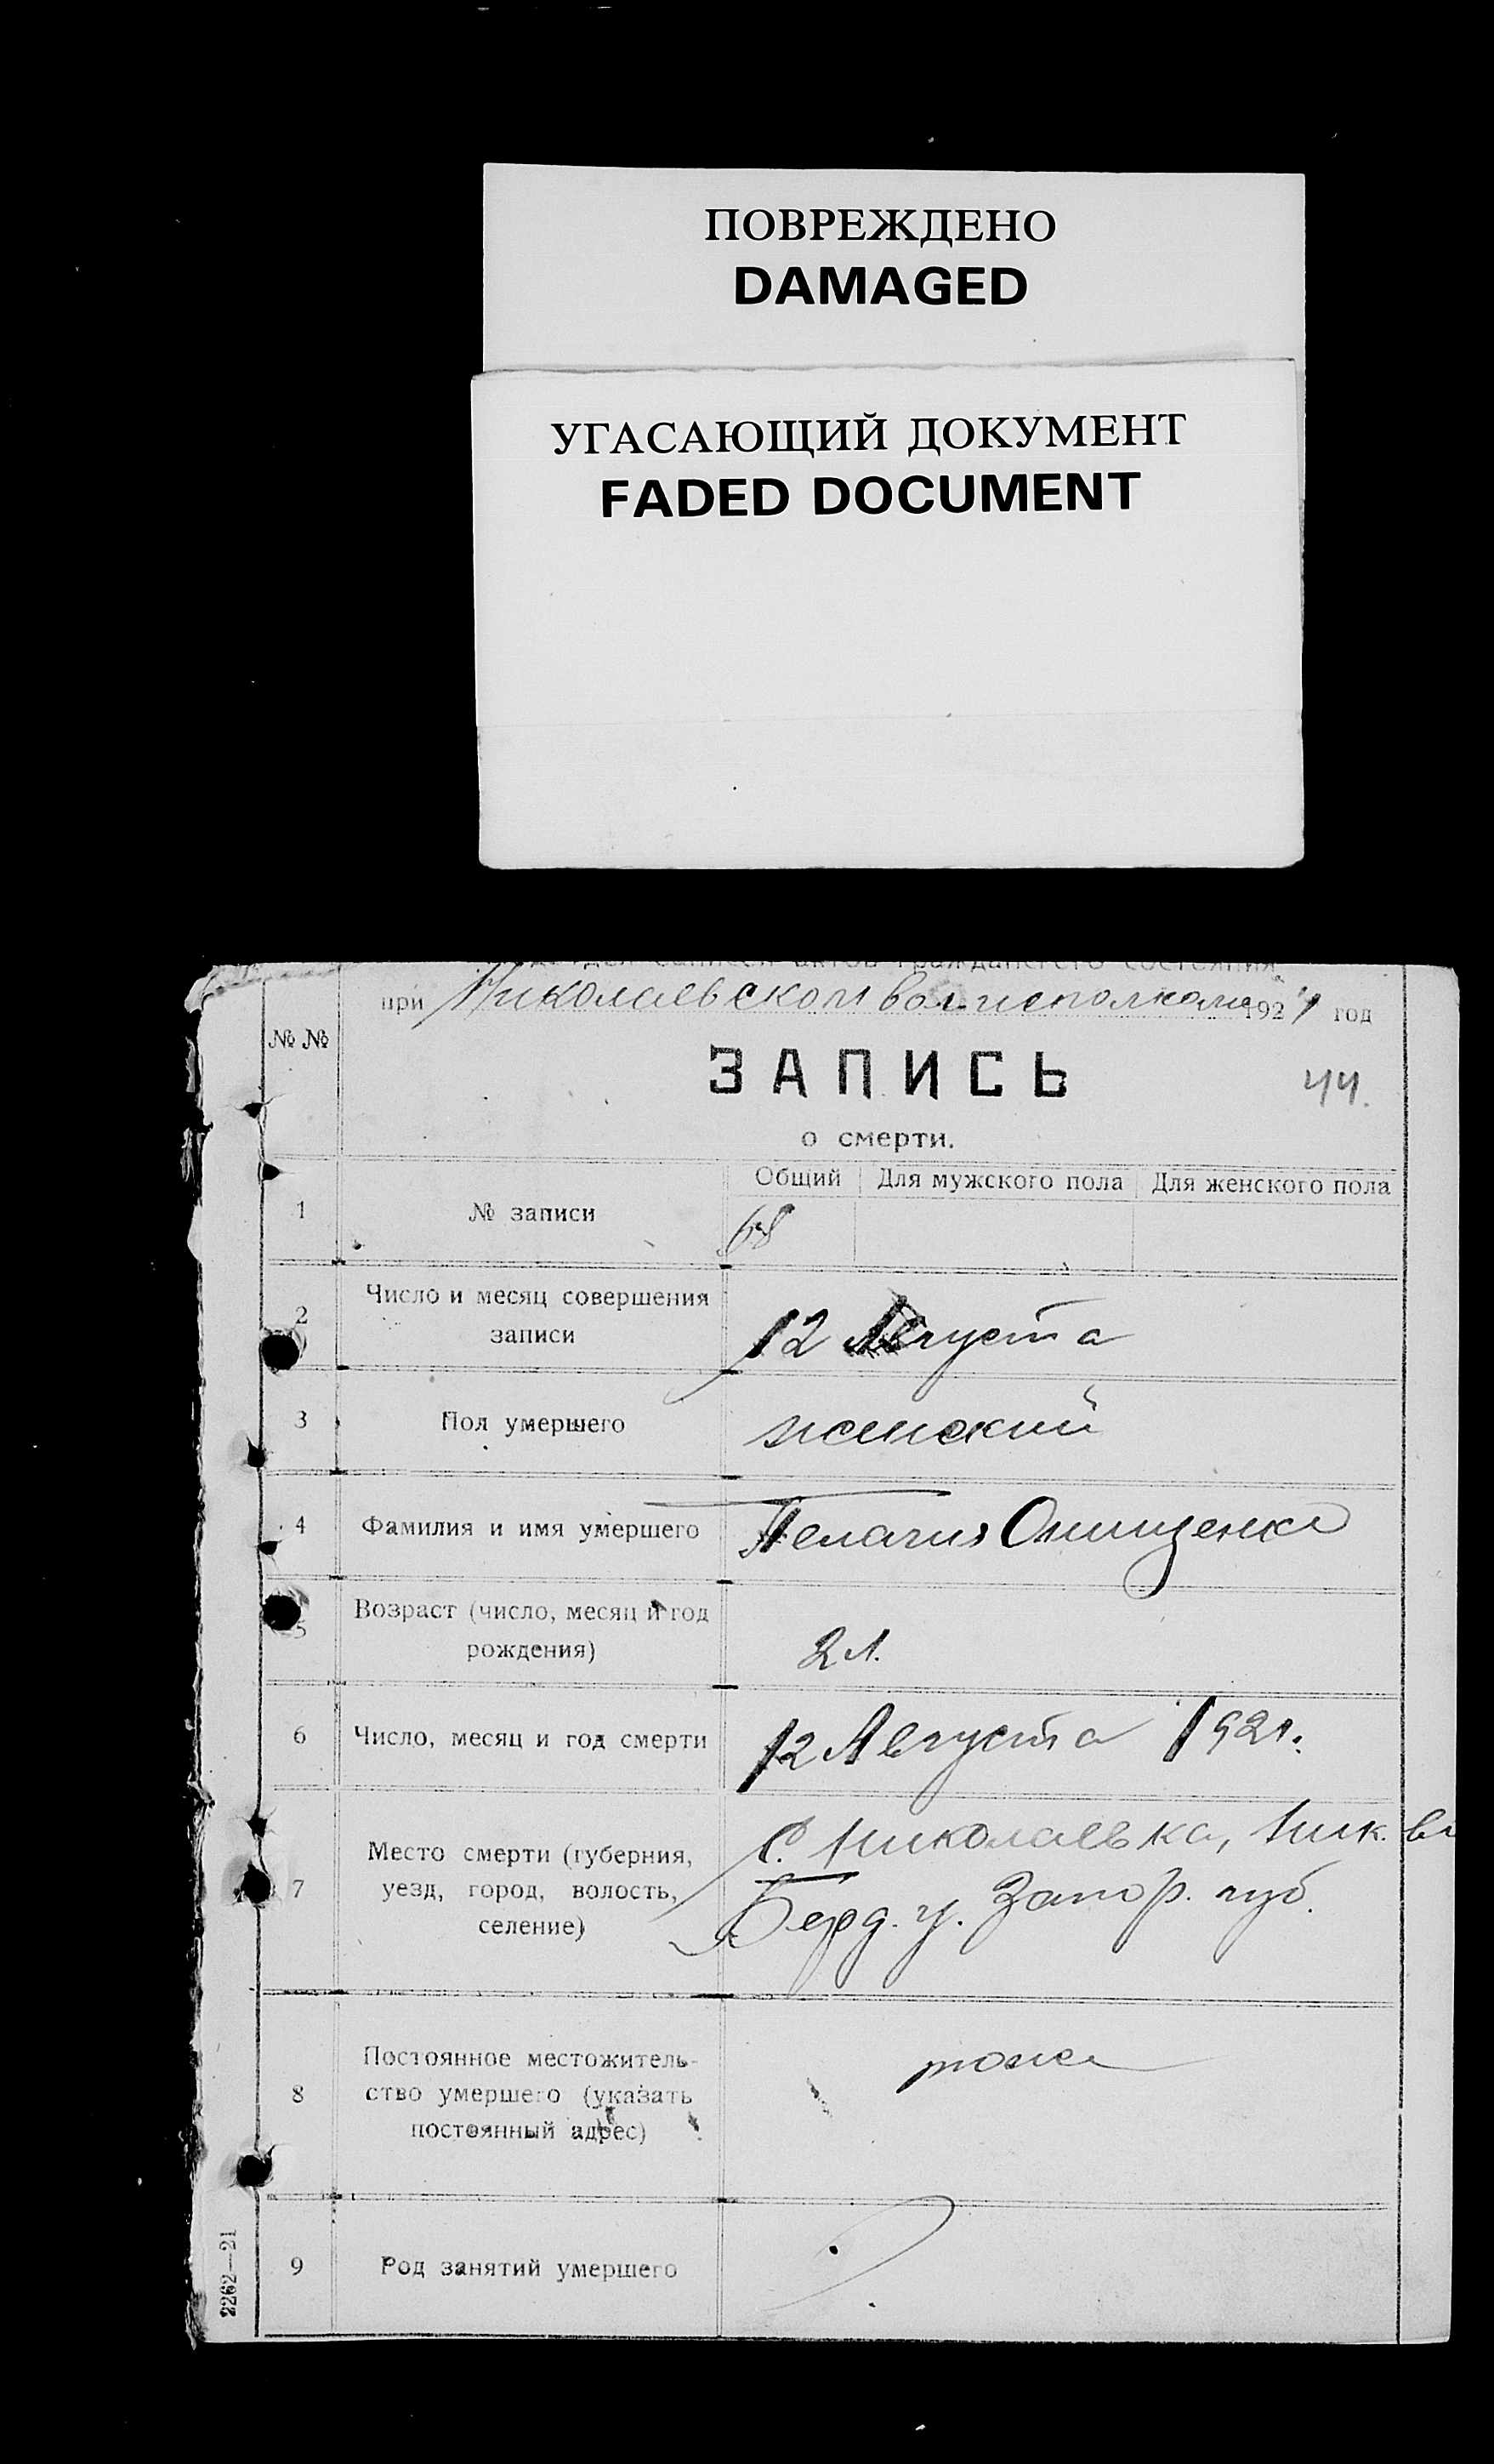 ПОВРЕЖДЕНО
DAMAGED
УГАСАЮЩИЙ ДОКУМЕНТ
FADED DOCUMENT
записей актов гражданского состояния
при Николаевском волисполкоме 1921 год
№ №
ЗАПИСЬ
44.
о смерти.
Общий Для мужского пола Для женского пола
1 № записи 68
2 Число и месяц совершения
записи
12 Августа
3 Пол умершего женский
4 Фамилия и имя умершего Пелагия Онищенко
5 Возраст (число, месяц и год
рождения)
2 л.
6 Число, месяц и год смерти 12 Августа 1921.
7 Место смерти (губерния,
уезд, город, волость,
селение)
С. Николаевка, Ник. во
Берд. у. Запор. губ.
8 Постоянное местожитель-
ство умершего (указать
постоянный адрес)
тоже
9 Род занятий умершего
2262—21